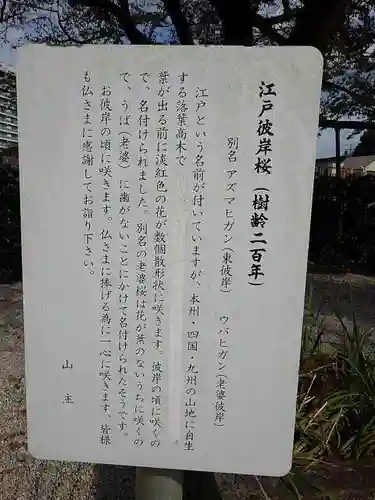 江戸彼岸桜（樹齢二百年）
別名 アズマヒガン（東彼岸） ウバヒガン（老婆彼岸）
江戸という名前が付いていますが、本州・四国・九州の山地に自生
する落葉高木で
葉が出る前に淡紅色の花が数個散形状に咲きます。彼岸の頃に咲くの
で、名付けられました。別名の老婆桜は花が葉のないうちに咲くの
で、うば（老婆）に歯がないことにかけて名付けられたそうです。
お彼岸の頃に咲きます。仏さまに捧げる為に一心に咲きます、皆様
も仏さまに感謝してお詣り下さい。
山主